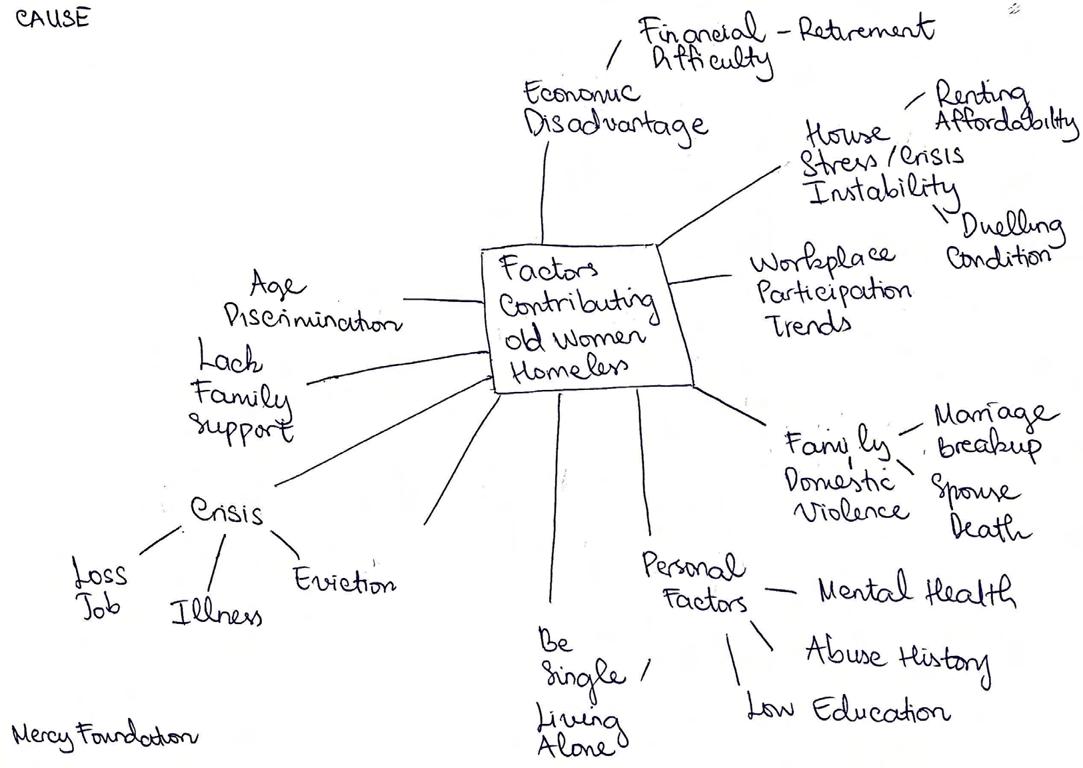 CAUSE
Financial - Retirement
Difficulty
Economic
Disadvantage
Renting
Affordability
House
Stress / Crisis
Instability
Duelling
Condition
Workplace
Participation
Trends
Factors
Contributing
old Women
Homeless
Age
Discrimination
Lack
Family
Support
Family
Domestic
Violence
Marriage
breakup
Spouse
Death
Crisis
Loss
Job
Illness
Eviction
Personal
Factors
Mental Health
Abuse History
Low Education
Be
Single /
Living
Alone
Mercy Foundation